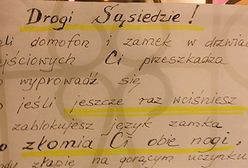 Drogi Sąsiedzie !
eli domofon i zamek w drzwiac
ejściowych Ci przeszkadza
o wyprowadź się
o jeśli jeszcze raz wciśniesz
zablokujesz język zamka
o złomią Ci obie nogi
złapię na gorącym uczynk